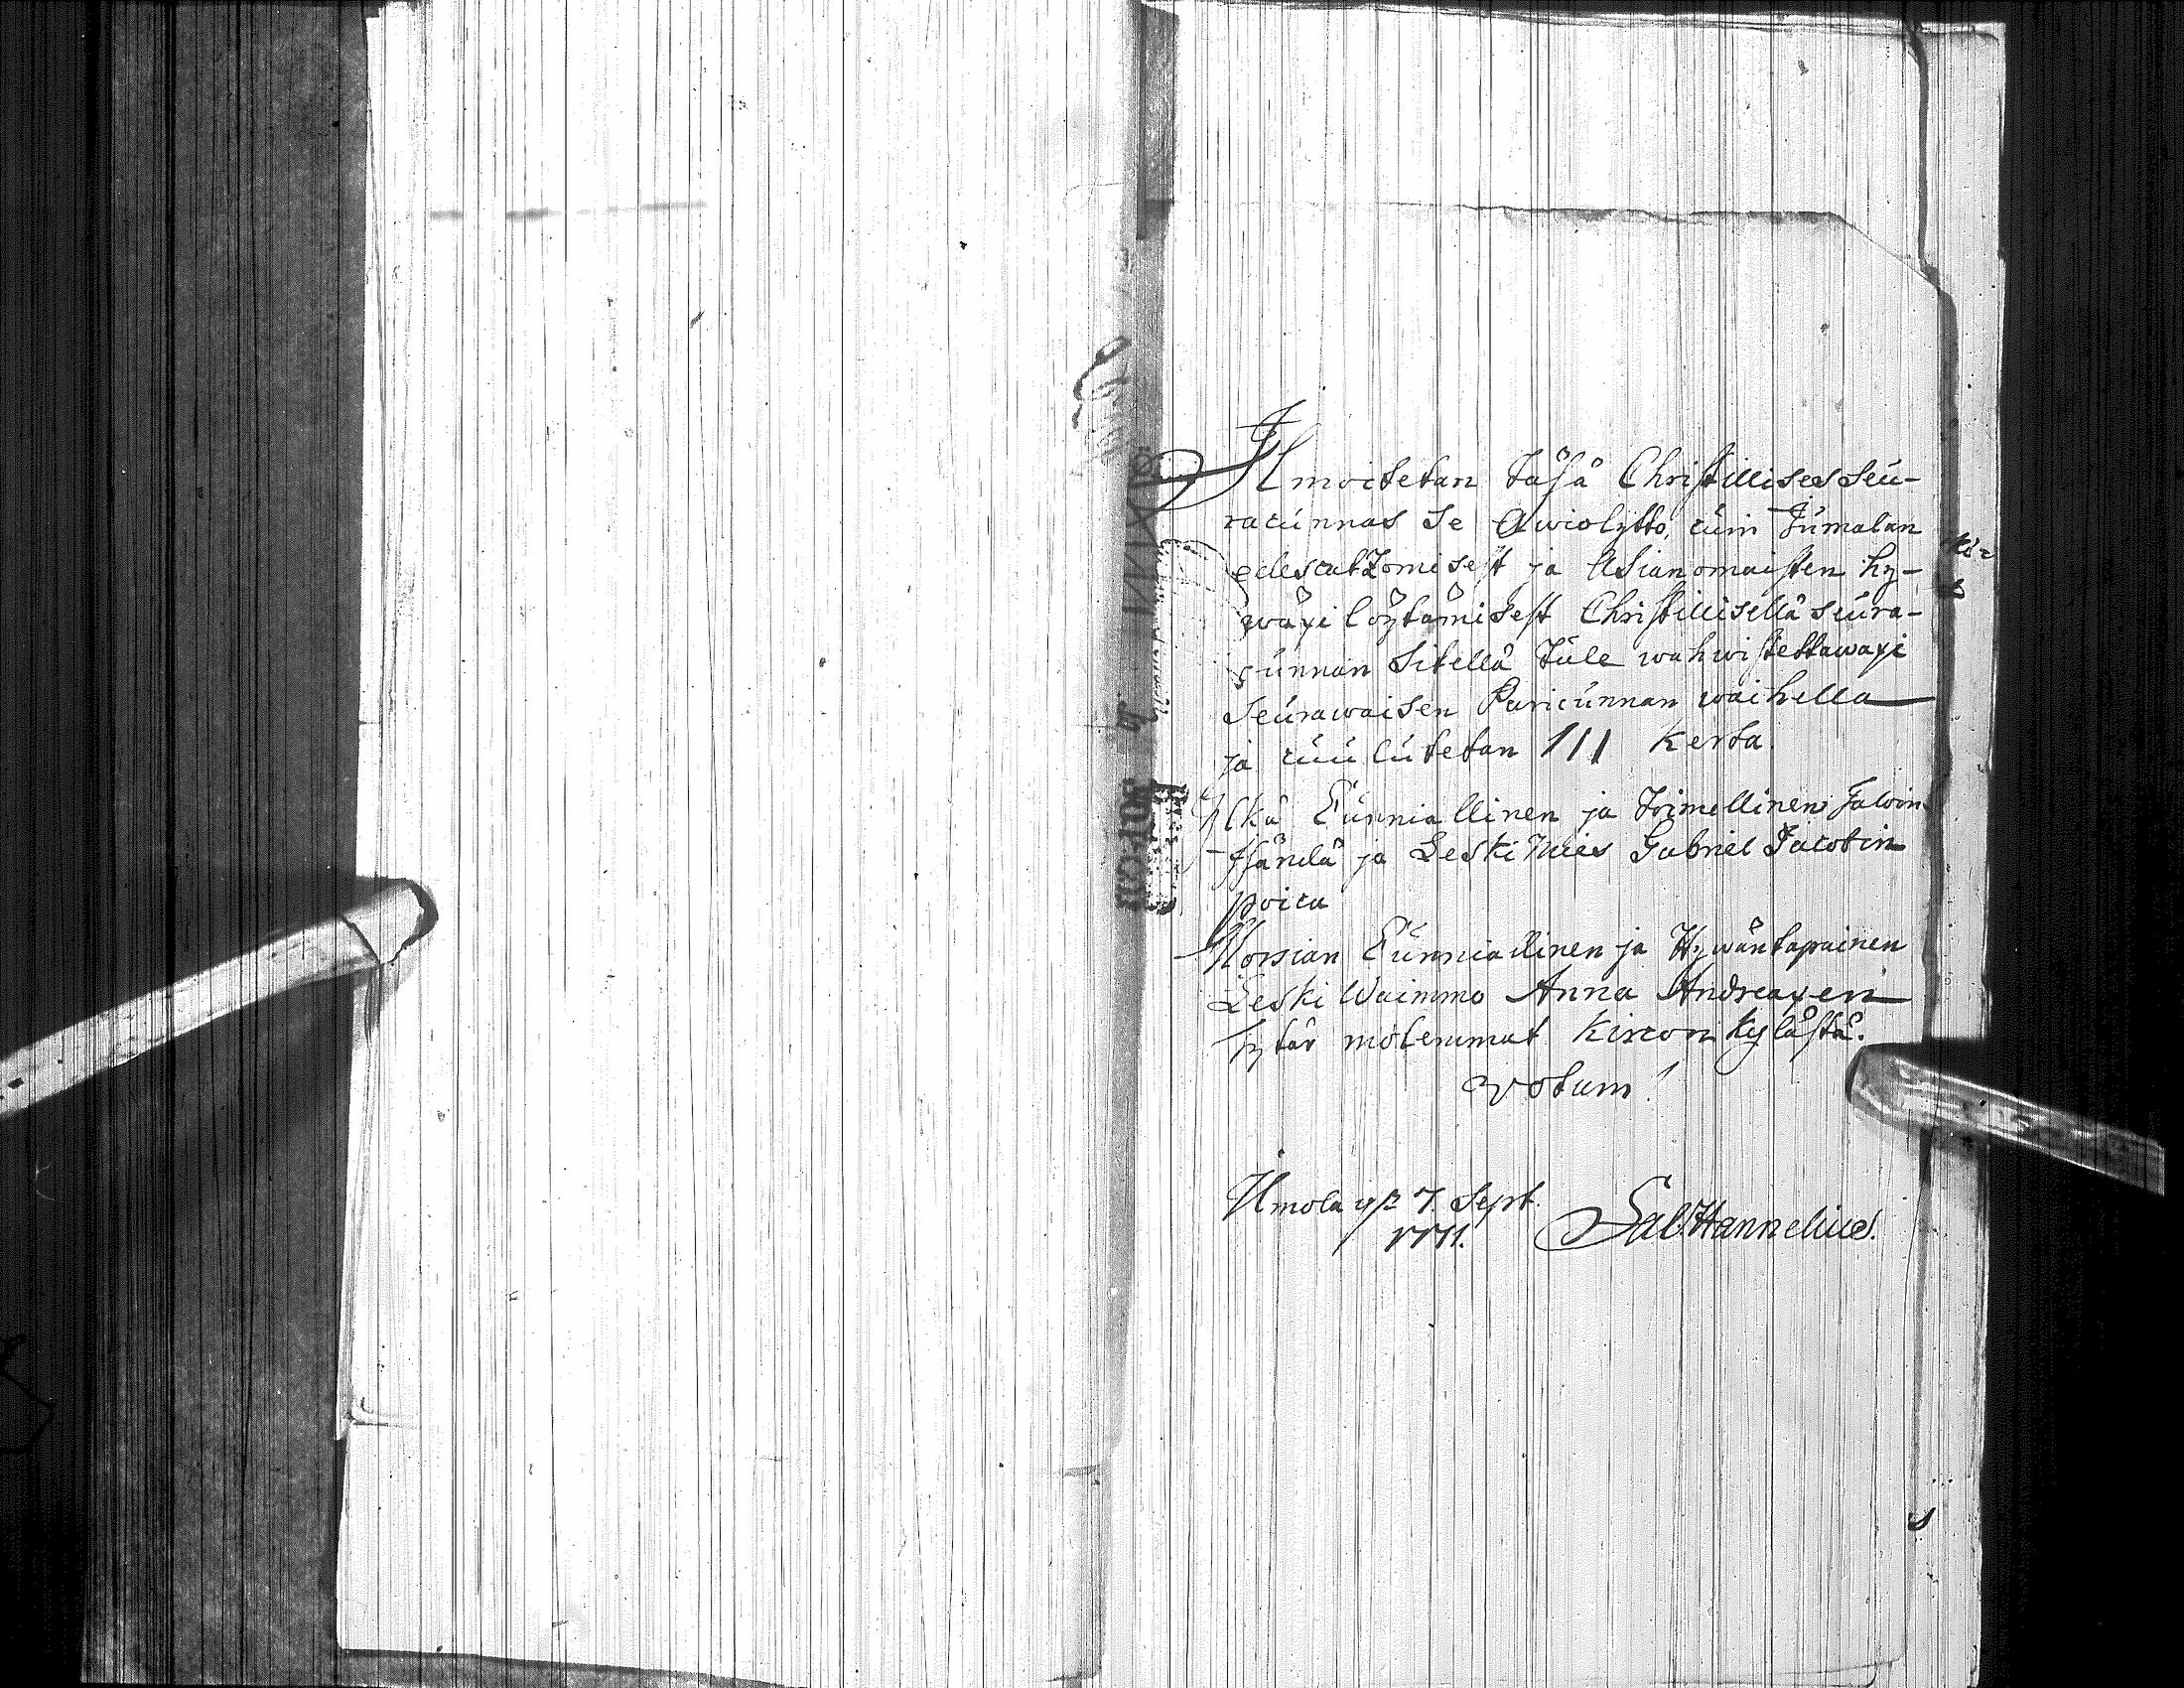 Ilmoitetan täsä Christillises seu-
racunnas se Awiolytto, cuin Jumalan
edescatzomisest ja Asianomaisten hy-
wäxi löytämisest Christillisellä seura-
cunnan sitellä tule wahwistettawaxi
seurawaisen Paricunnan waihella
ja cuulutetan III kerta.
Ylkä Cunniallinen ja toimellinen Talon
Isändä ja Leski Mies Gabriel Jacobin
poica
Morsian Cunniallinen ja Hywäntapainen
Leski Waimmo Anna Andreaxen
Tytär molemmat kircon kylästä.
Votum!
7. Sept.
1771.
Sal. Hannelius.